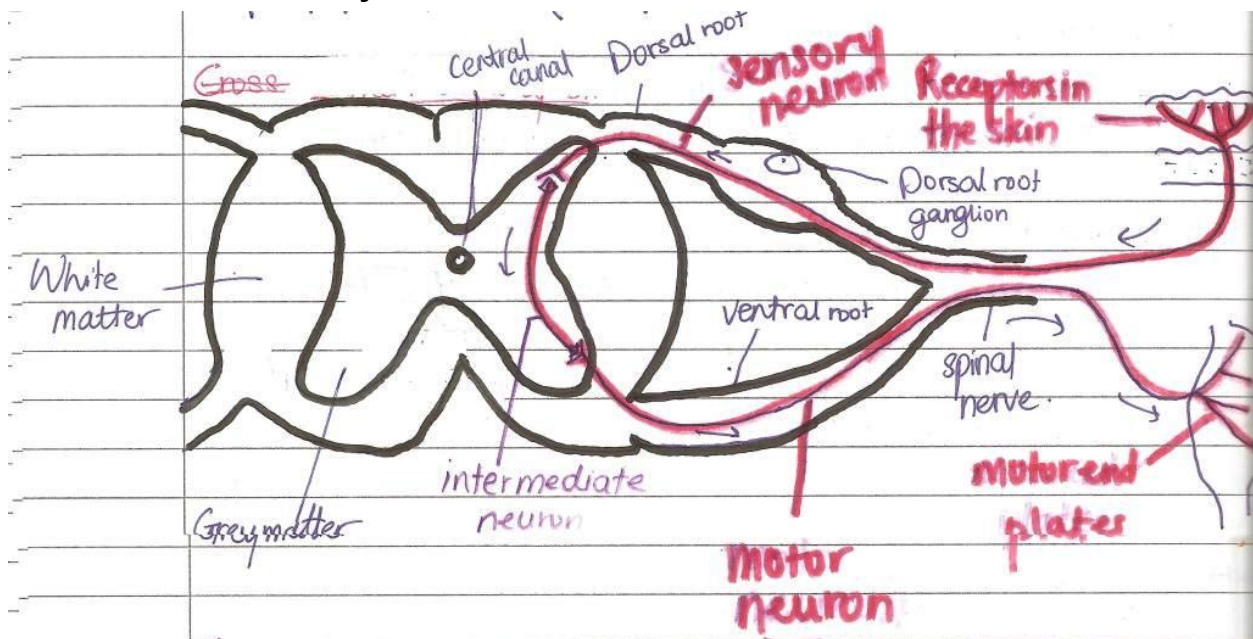 Cross
central
canal
Dorsal root
sensory
neuron
Receptors in
the skin
Dorsal root
ganglion
White
matter
ventral root
spinal
nerve.
intermediate
neuron
Grey matter
motor end
plates
motor
neuron